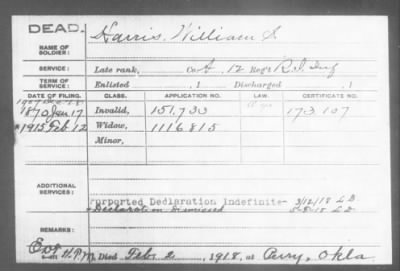 DEAD.
NAME OF SOLDIER:
Harris, William S.
SERVICE:
Late rank, Co. A, 12 Reg't R.I. Inf
TERM OF SERVICE:
Enlisted , 1 Discharged , 1
DATE OF FILING. CLASS. APPLICATION NO. LAW. CERTIFICATE NO.
1870 Jan 17 Invalid, 151,733 173,107
*1915 Feb 12 Widow, 1116,815
Minor,
ADDITIONAL SERVICES:
Purported Declaration indefinite- 3/12/18
*Declaration Dismissed
REMARKS:
Died Feb. 2, 1918, at Perry, Okla.